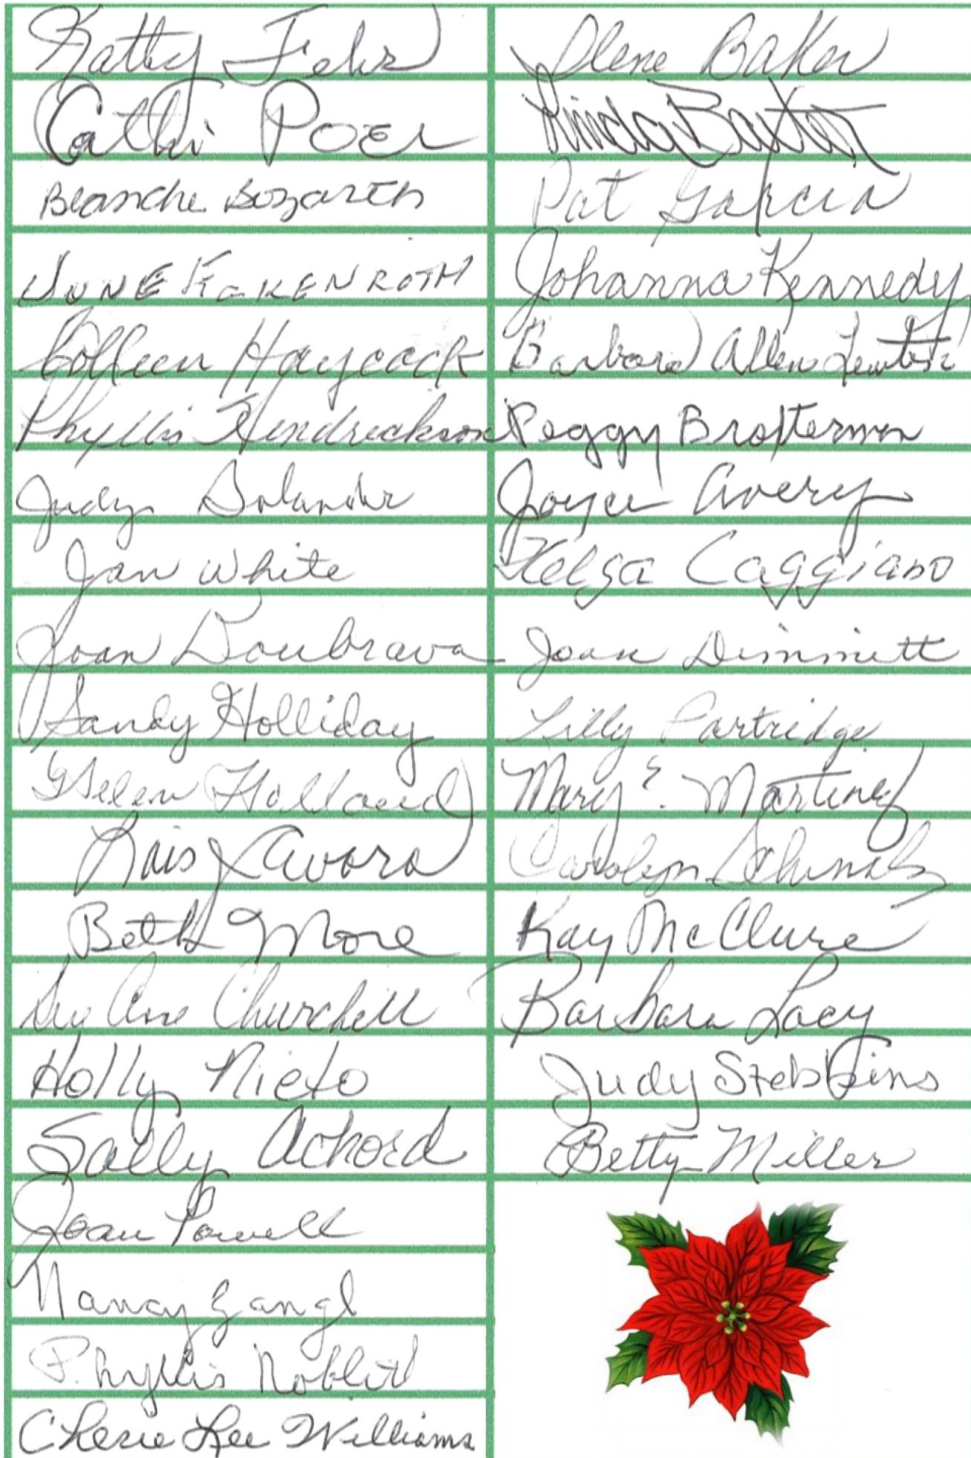 Kathy Fehr
Cathi Poer
Blanche Bozarth
JUNE ECKENROTH
Colleen Haycock
Phyllis Hendrickson
Judy Solander
Jan White
Joan Doubrava
Sandy Holliday
Helen Holland
Lois Avora
Beth More
Sue Ann Churchill
Holly Nieto
Sally Achord
Joan Powell
Nancy Gangl
Phyllis Noblitt
Cherie Lee Williams
Ilene Baker
Linda Baxter
Pat Garcia
Johanna Kennedy
Barbara Allen
Peggy Brotterman
Joyce Avery
Helga Caggiano
Joan Dimmitt
Lilly Partridge
Mary E. Martinez
Carolyn Schmalz
Kay McClure
Barbara Lacy
Judy Stebbins
Betty Miller